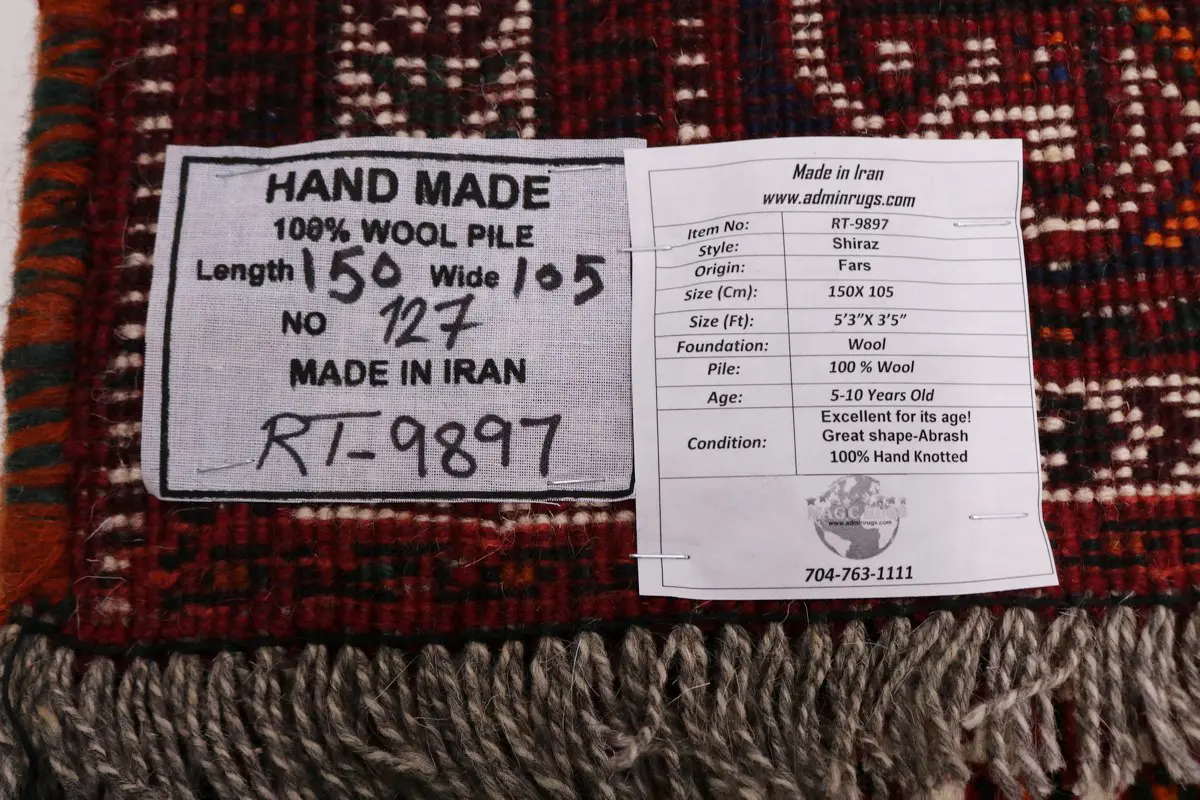 HAND MADE
100% WOOL PILE
Length 150 Wide 105
NO 127
MADE IN IRAN
RT-9897
Made in Iran
www.adminrugs.com
Item No: RT-9897
Style: Shiraz
Origin: Fars
Size (Cm): 150X 105
Size (Ft): 5'3"X 3'5"
Foundation: Wool
Pile: 100 % Wool
Age: 5-10 Years Old
Condition: Excellent for its age!
Great shape-Abrash
100% Hand Knotted
www.adminrugs.com
704-763-1111